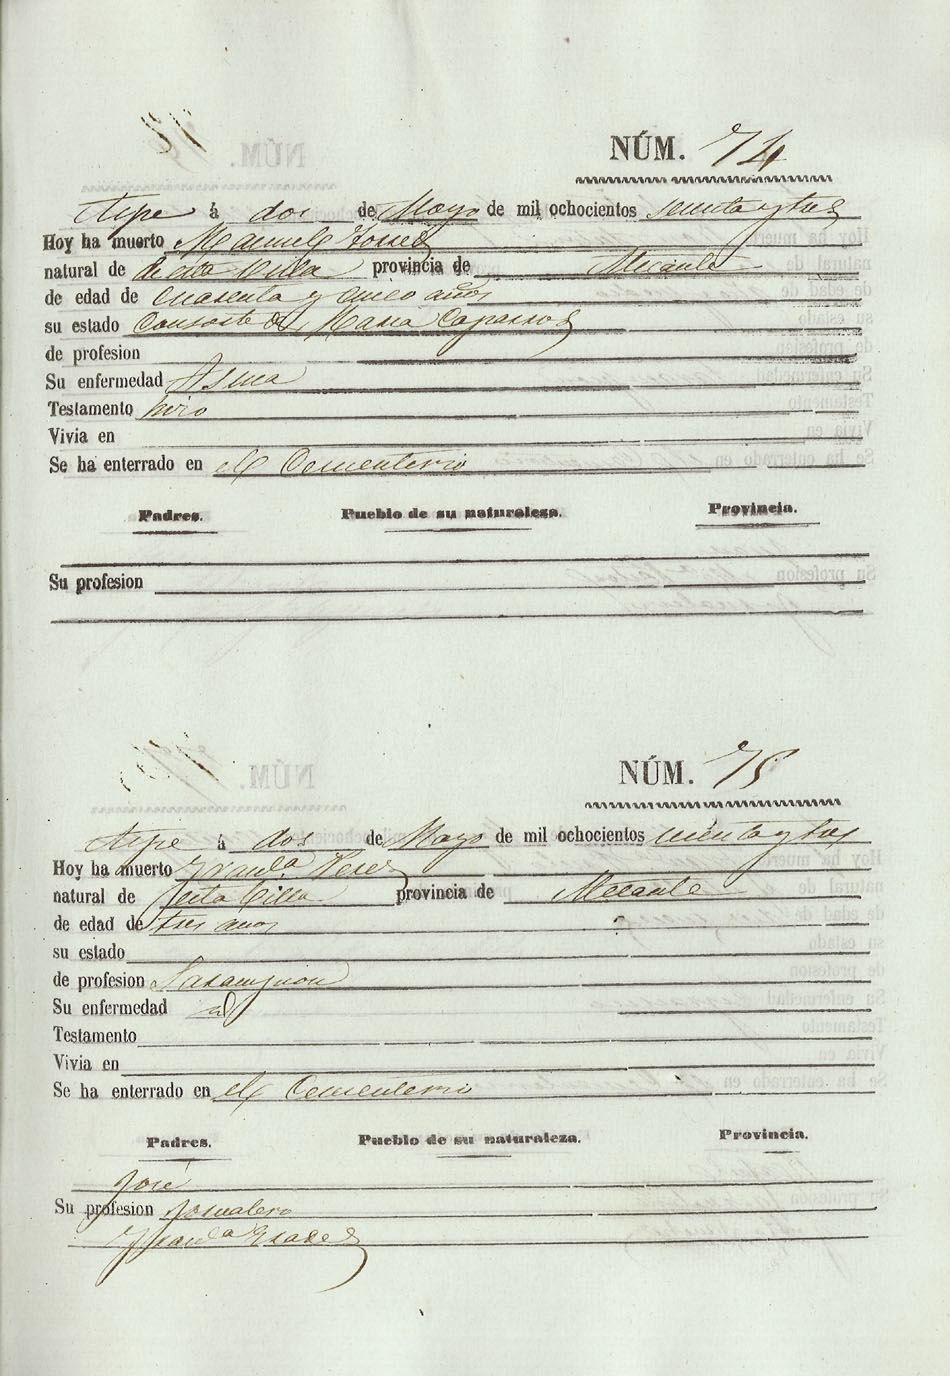 NÚM. 74
Aspe á dos de Mayo de mil ochocientos sesenta y tres
Hoy ha muerto Manuel Torres
natural de de esta Villa provincia de Alicante
de edad de cuarenta y cinco años
su estado Consorte de Maria Caparros
de profesion
Su enfermedad Asma
Testamento hizo
Vivia en
Se ha enterrado en el Cementerio
Padres. Pueblo de su naturaleza. Provincia.
Su profesion
NÚM. 75
Aspe á dos de Mayo de mil ochocientos sesenta y tres
Hoy ha muerto
natural de esta Villa provincia de Alicante
de edad de tres años
su estado
de profesion Sarampion
Su enfermedad id
Testamento
Vivia en
Se ha enterrado en el Cementerio
Padres. Pueblo de su naturaleza. Provincia.
José
Su profesion Jornalero